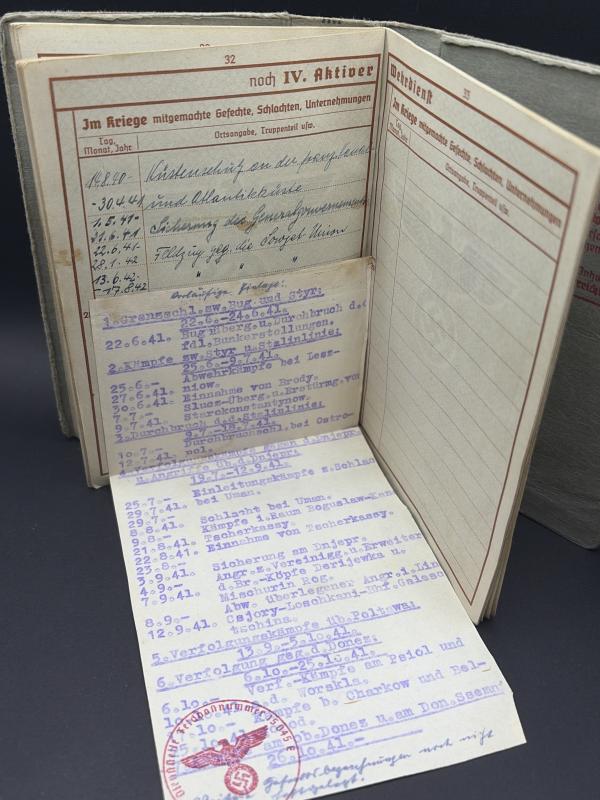 32
noch IV. Aktiver
Im Kriege mitgemachte Gefechte, Schlachten, Unternehmungen
Tag, Monat, Jahr
Ortsangabe, Truppenteil usw.
Küstenschutz an der franz. Kanal
-30.4.41 und Atlantikküste
1.5.41- Sicherung des Generalgouvernements
21.6.41
22.6.41- Feldzug geg. die Sowjet Union
28.1.42
13.6.42- " " "
-17.8.42
Wehrdienst
33
Im Kriege mitgemachte Gefechte, Schlachten, Unternehmungen
Tag, Monat, Jahr
Ortsangabe, Truppenteil usw.
Vorläufige Einlage:
1.Grenzschl.zw.Bug und Styr:
22.6.-24.6.41.
22.6.41. Bug Überg.u.Durchbruch d.d.
fdl.Bunkerstellungen.
2.Kämpfe zw.Styr u.Stalinlinie:
25.6.-9.7.41.
25.6.- Abwehrkämpfe bei Lesz-
27.6.41. niow.
30.6.41. Einnahme von Brody.
7.7.- Slucz-Überg.u.Erstürmg.von
9.7.41. Starokonstantynow.
3.Durchbruch d.d.Stalinlinie:
9.7.-18.7.41.
10.7.- Durchbruchschl.bei Ostro-
12.7.41. pol.
4.Verfolgungskämpfe gegen d.Dnjepr
u.Angriffe üb.d.Dnjepr:
19.7.-12.9.41.
25.7.- Einleitungskämpfe z.Schlacht
29.7.41. bei Uman.
29.7.- Schlacht bei Uman.
8.8.41.
9.8.- Kämpfe i.Raum Boguslaw-
21.8.41. Tscherkassy.
22.8.41. Einnahme von Tscherkassy.
23.8.- Sicherung am Dnjepr.
3.9.41.
4.9.- Angr.z.Vereinigg.u.Erweiter
7.9.41. d.Br.-Köpfe Derijewka u.
Mischurin Rog.
8.9.- Abw.überlegener Angr.i.Lin
12.9.41. Csjory-Loschkani-Bhf.Galesc
tschina.
5.Verfolgungskämpfe üb.Poltawa:
13.9.-5.10.41.
6.Verfolgung geg.d.Donez:
6.10.-25.10.41.
6.10.- Verf.-Kämpfe am Psiol und
a.d. Worskla.
Kämpfe b. Charkow und Bel-
rod.
am ob.Donez u.am Don.
26.10.41.-
Gefechtsbezeichnungen noch nicht
festgelegt.
Dienststelle Feldpostnummer 25045 E